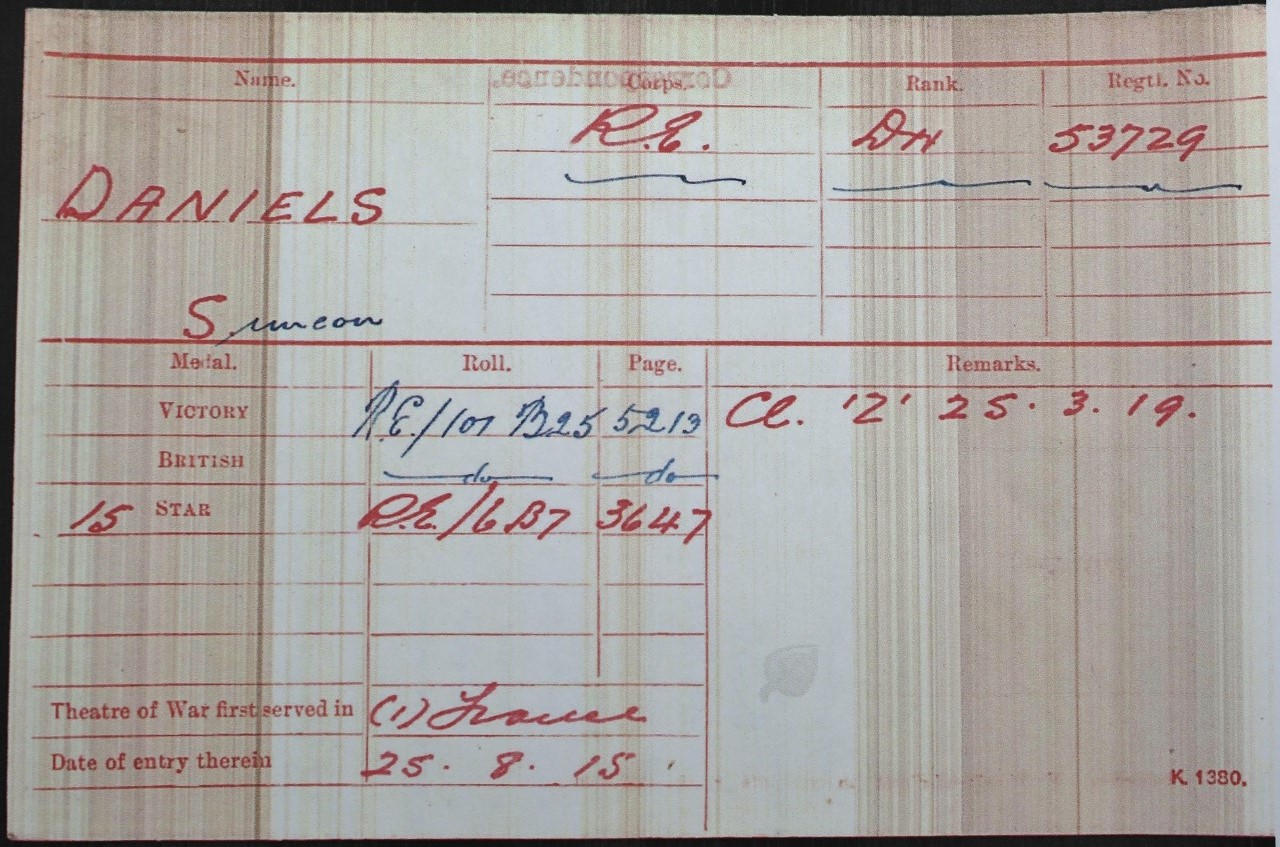 Correspondence.
Name. Corps. Rank. Regtl. No.
R.E. Dvr 53729
DANIELS
Simeon
Medal. Roll. Page. Remarks.
VICTORY R.E./101 B25 5213 Cl. 'Z' 25. 3. 19.
BRITISH do do
15 STAR R.E./6B7 3647
Theatre of War first served in (1) France
Date of entry therein 25. 8. 15
K. 1380.